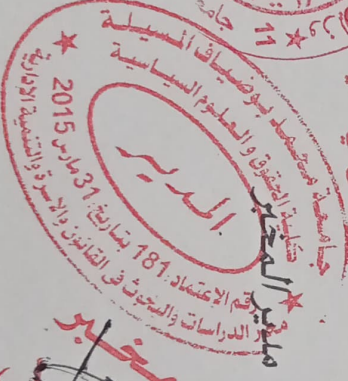 جامعة محمد بوضياف المسيلة
كلية الحقوق والعلوم السياسية
المدير
رقم الاعتماد: 181 بتاريخ: 31 مارس 2015
مخبر الدراسات والبحوث في القانون والأسرة والتنمية الإدارية
مدير المخبر
مخبر
11